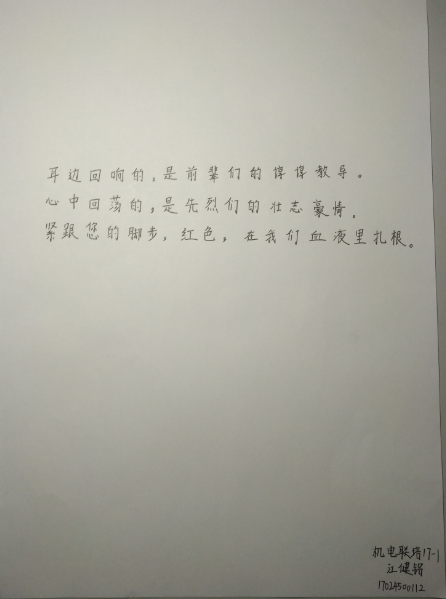 耳边回响的，是前辈们的谆谆教导。
心中回荡的，是先烈们的壮志豪情，
紧跟您的脚步，红色，在我们血液里扎根。
机电联培17-1
江健
1702500112